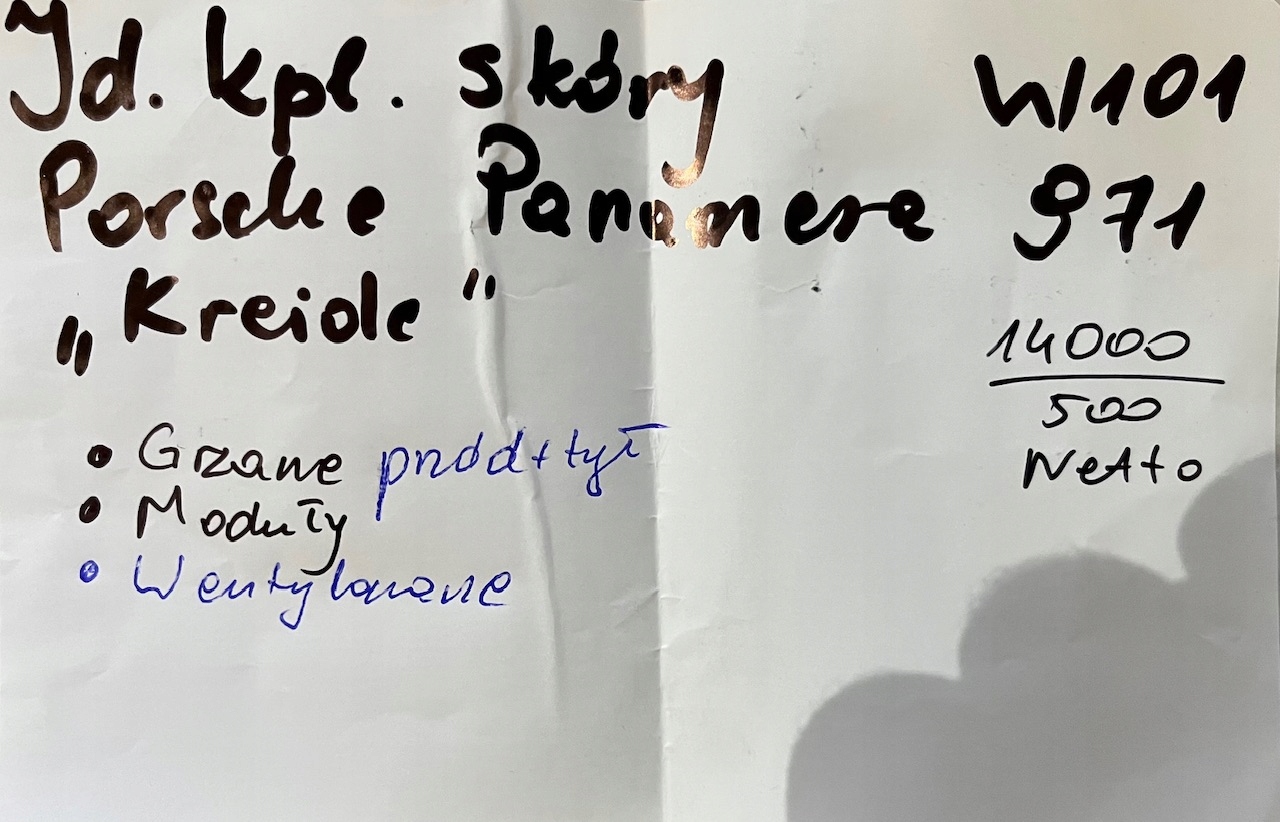 Jd. kpl. skóry W101
Porsche Panamera 971
„Kreide"
14000
500
Netto
• Grzane przód+tył
• Moduły
• Wentylowane